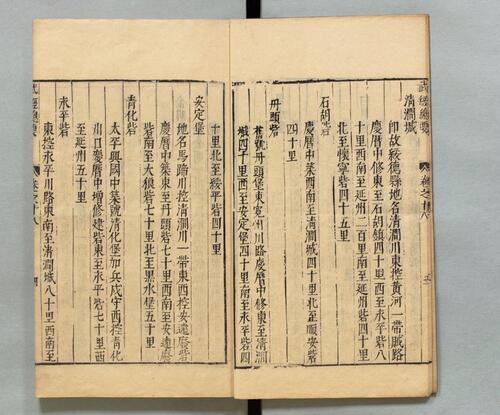 武經總要
卷之十八
清澗城
即故綏德縣地名清澗川東控黃河一帶賊路
慶曆中修東至石胡鎮四十里西至永平砦八
十里西南至延州二百里南至延州砦四十里
北至綏寧砦四十五里
石胡砦
慶曆中築西南至清澗城四十里北至順安砦
四十里
丹頭砦
舊號丹頭堡東寬州川路慶曆中修東至清澗
城四十里西至安定堡四十里南至永平砦四
十里北至綏平砦四十里
安定堡
地名馬蹄川控清澗川一帶東西控安遠
慶曆中築東至丹頭砦七十里西南至安遠
砦南至大狼砦七十里北至黑水堡五十里
青化砦
太平興國中築號清化堡加兵戍守西控青化
川口慶曆中增修建砦東至永平砦七十里西
至延州五十里
永平砦
東控永平川路東南至清澗城八十里西南至
武經總要
卷之十八